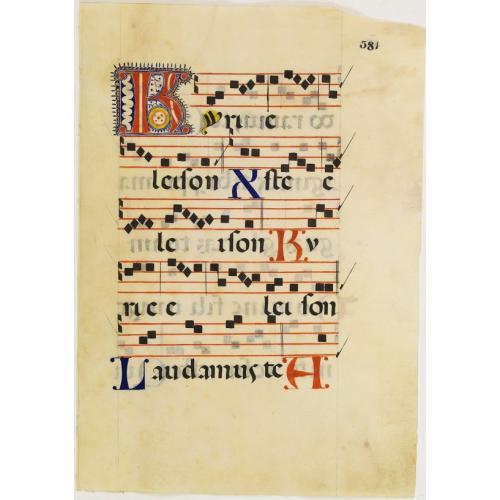 581
Kyrie e
leison Xpste e
le ison Ky
rie e lei son
Laudamus te A